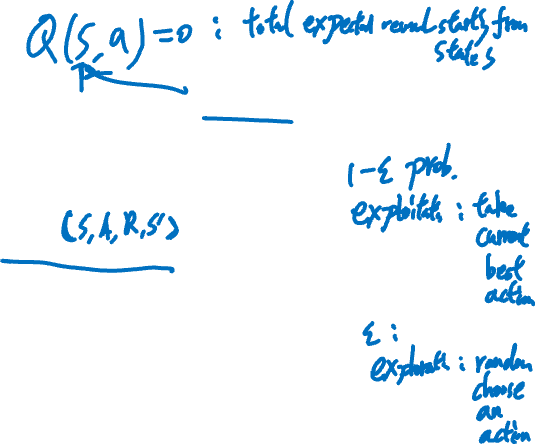 Q(s,a)=0 : total expected reward starts from
state s
(S, A, R, S')
1-ε prob.
exploitation : take
current
best
action
ε :
exploration : random
choose
an
action